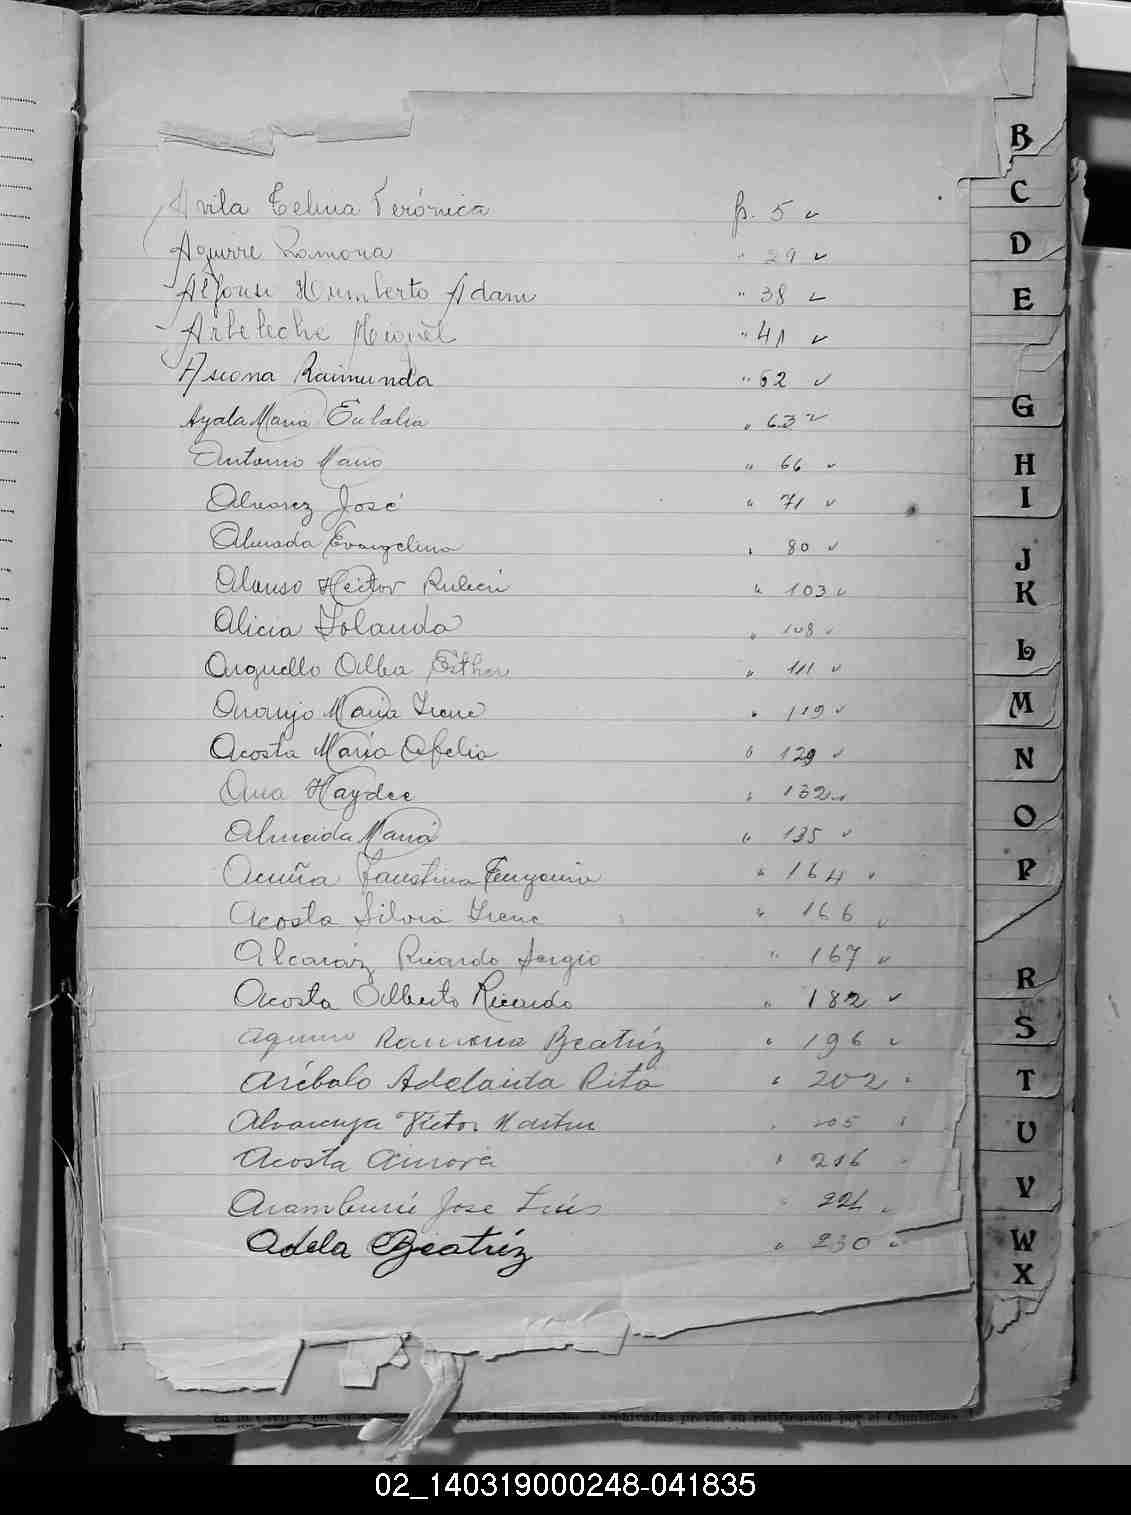 Avila Celina Verónica p. 5 ✓
Aguirre Ramona " 29 ✓
Alfonsi Humberto Adam " 38 ✓
Arbeleche Miguel " 41 ✓
Ascona Raimunda " 62 ✓
Ayala Maria Eulalia " 63 ✓
Antonio Mario " 66 ✓
Alvarez José " 71 ✓
Almada Evangelina " 80 ✓
Alonso Héctor Rubén " 103 ✓
Alicia Yolanda " 108 ✓
Arguello Alba Esther " 111 ✓
Araujo Maria Irene " 119 ✓
Acosta María Ofelia " 129 ✓
Ana Haydee " 132 ✓
Almeida Maria " 135 ✓
Acuña Faustina Eugenia " 164 ✓
Acosta Silvia Irene " 166 ✓
Alcaráz Ricardo Sergio " 167 ✓
Acosta Alberto Ricardo " 182 ✓
Aquino Ramona Beatríz " 196 ✓
Arébalo Adelaida Rita " 202 "
Alvarenga Victor Martin " 205 "
Acosta Aurora " 216
Aramburú Jose Luis " 221 ✓
Adela Beatríz " 230 ✓
B
C
D
E
G
H
I
J
K
L
M
N
O
P
R
S
T
U
V
W
X
02_140319000248-041835